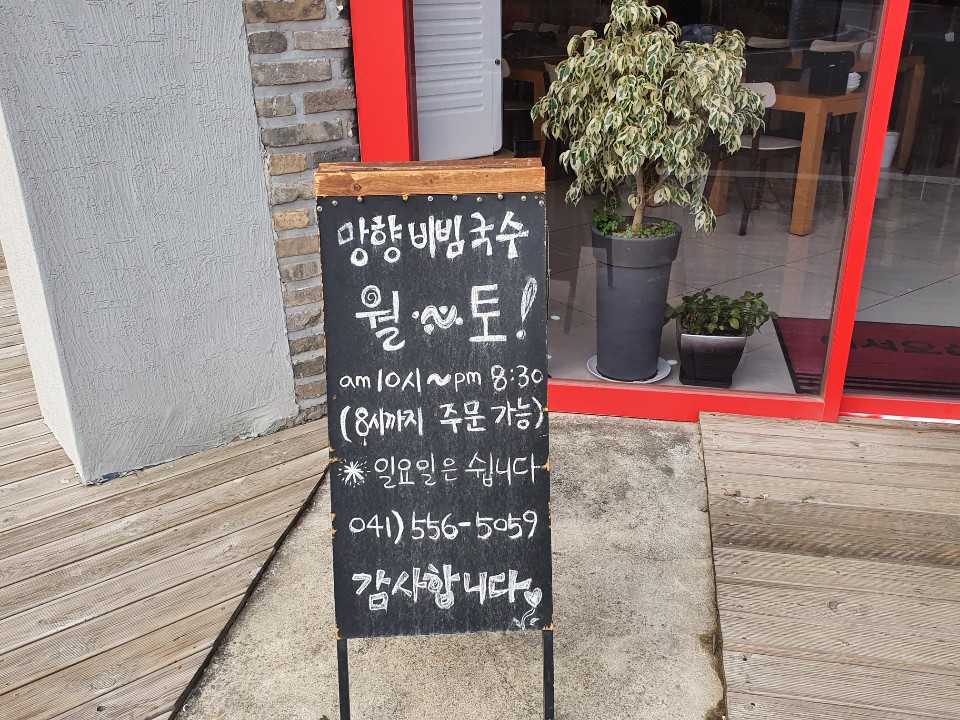 망향비빔국수
월~토!
am10시~pm 8:30
(8시까지 주문 가능)
※ 일요일은 쉽니다
041)556-5059
감사합니다